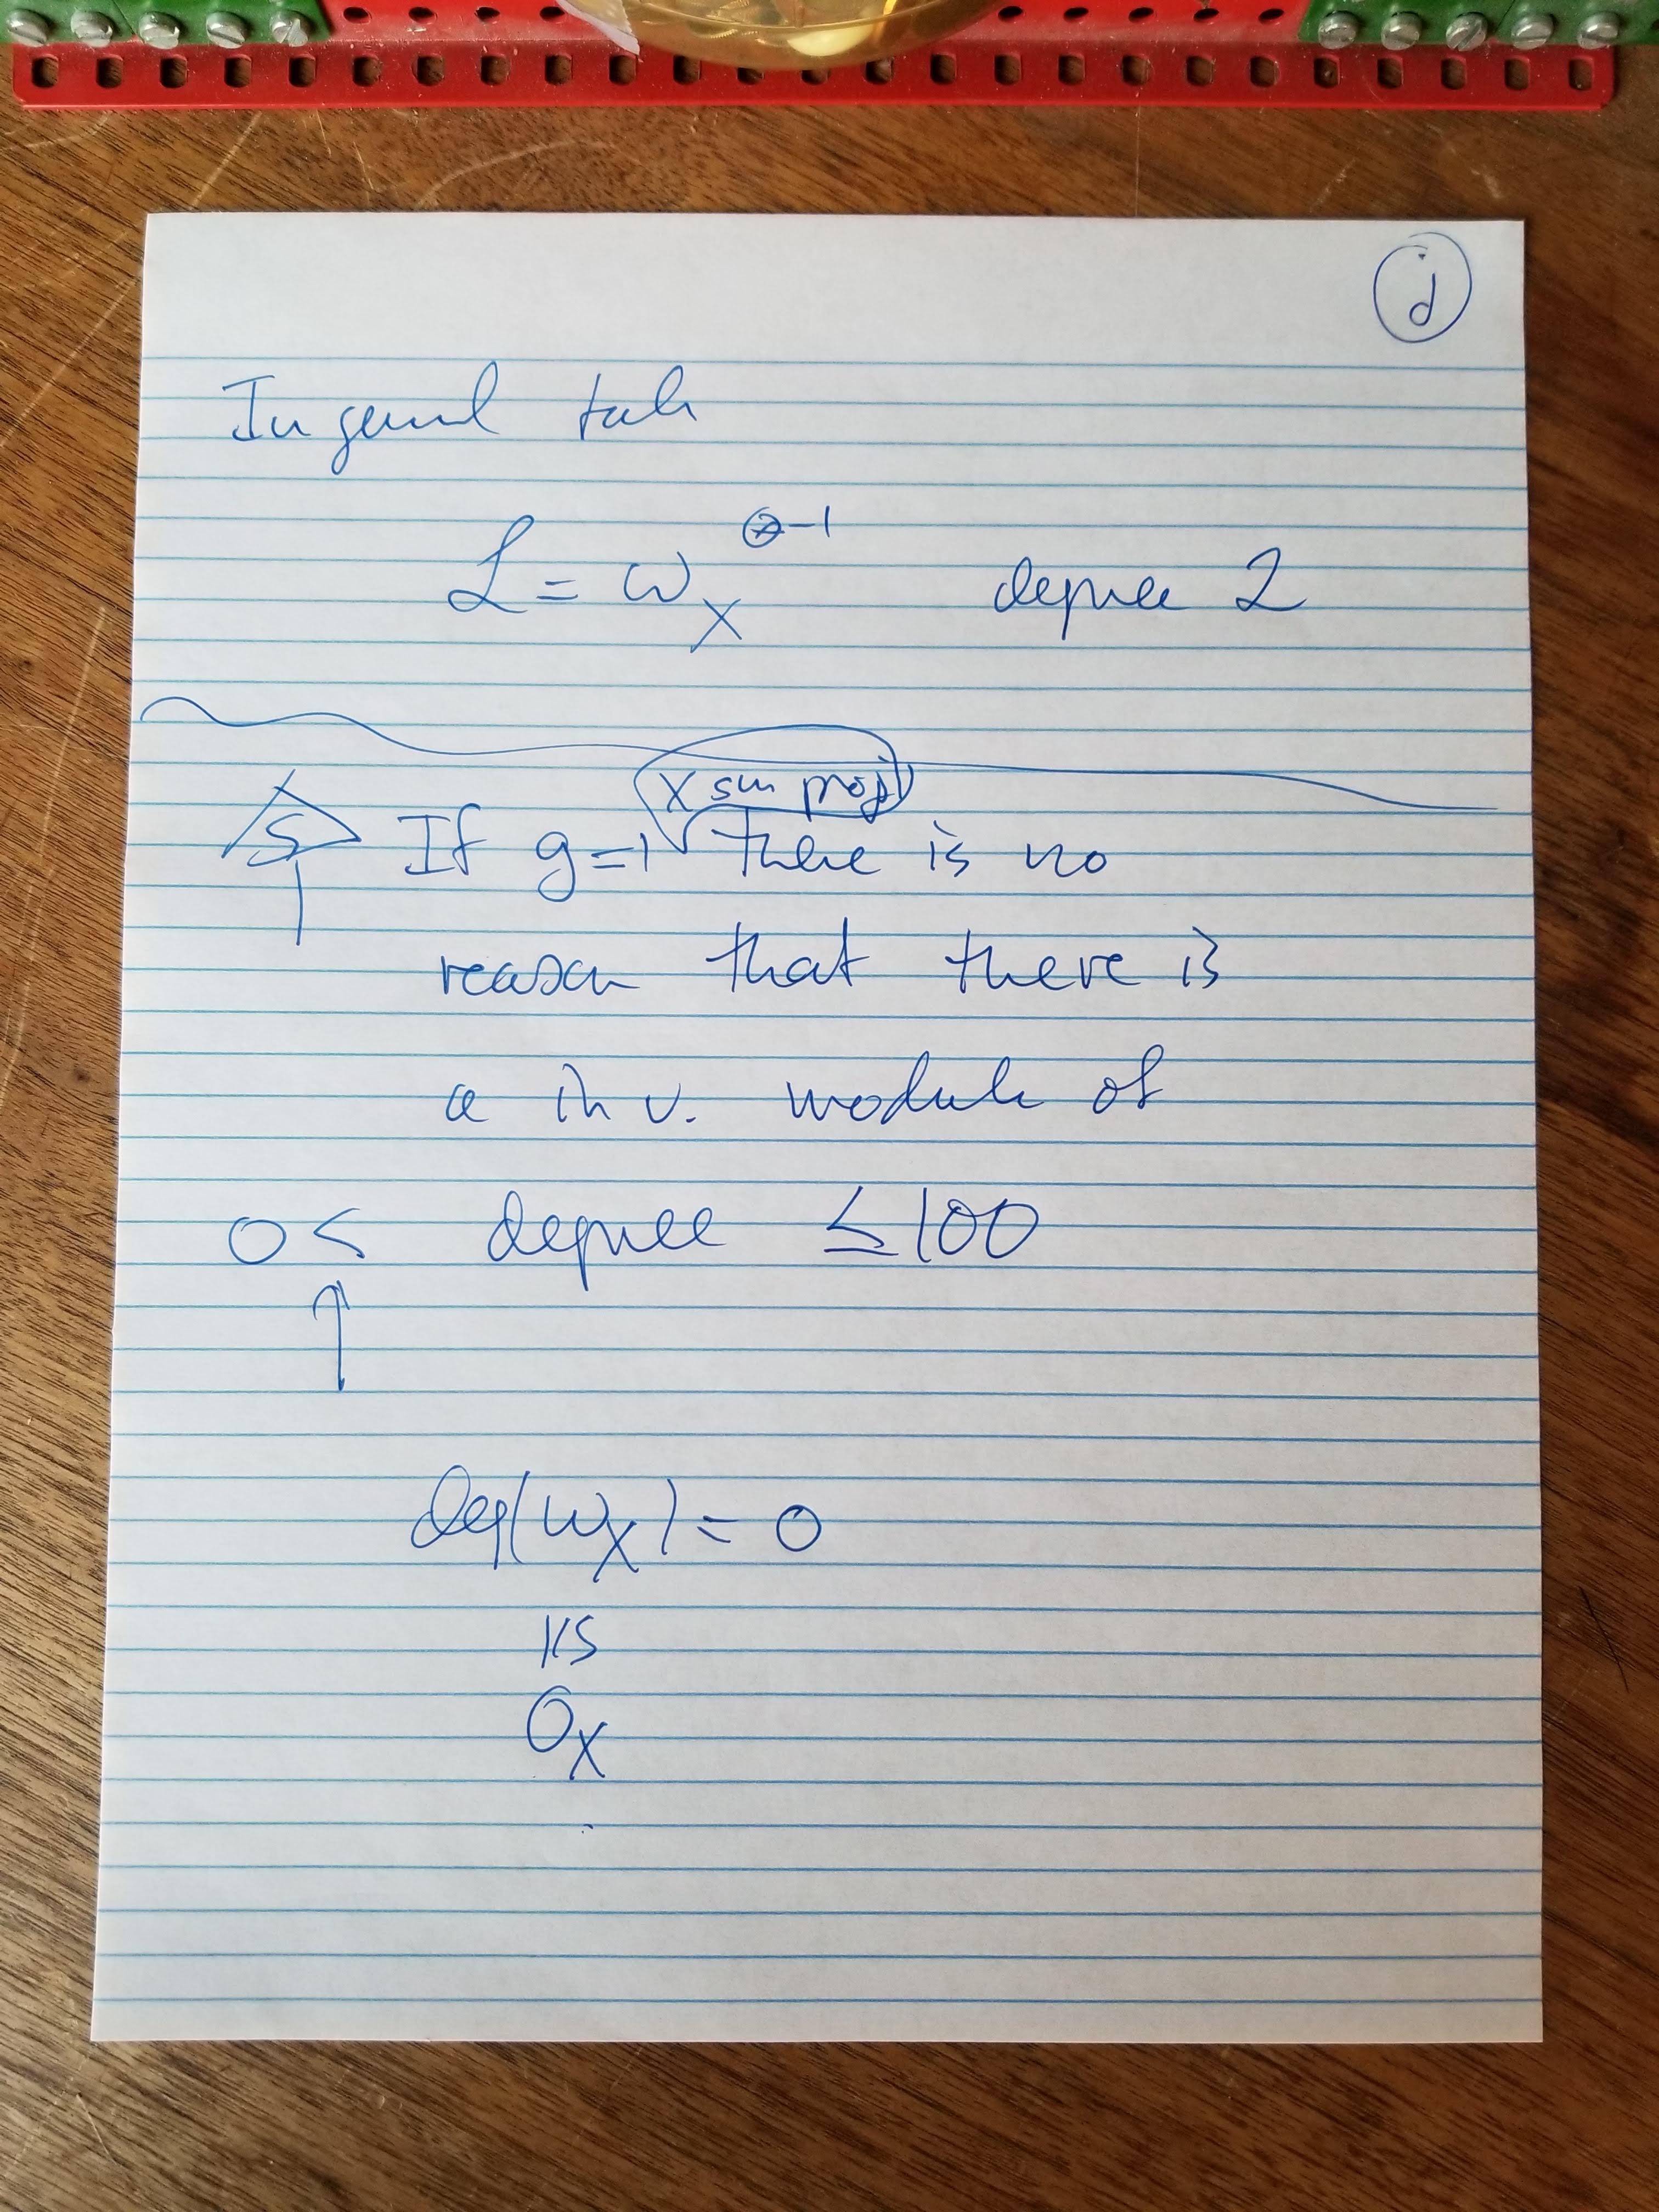 j
In general take
L = ω_X^{⊗-1} degree 2
X sm proj
S If g=1 there is no
reason that there is
a inv. module of
0 < degree ≤ 100
↑
deg(ω_X) = 0
≅
O_X